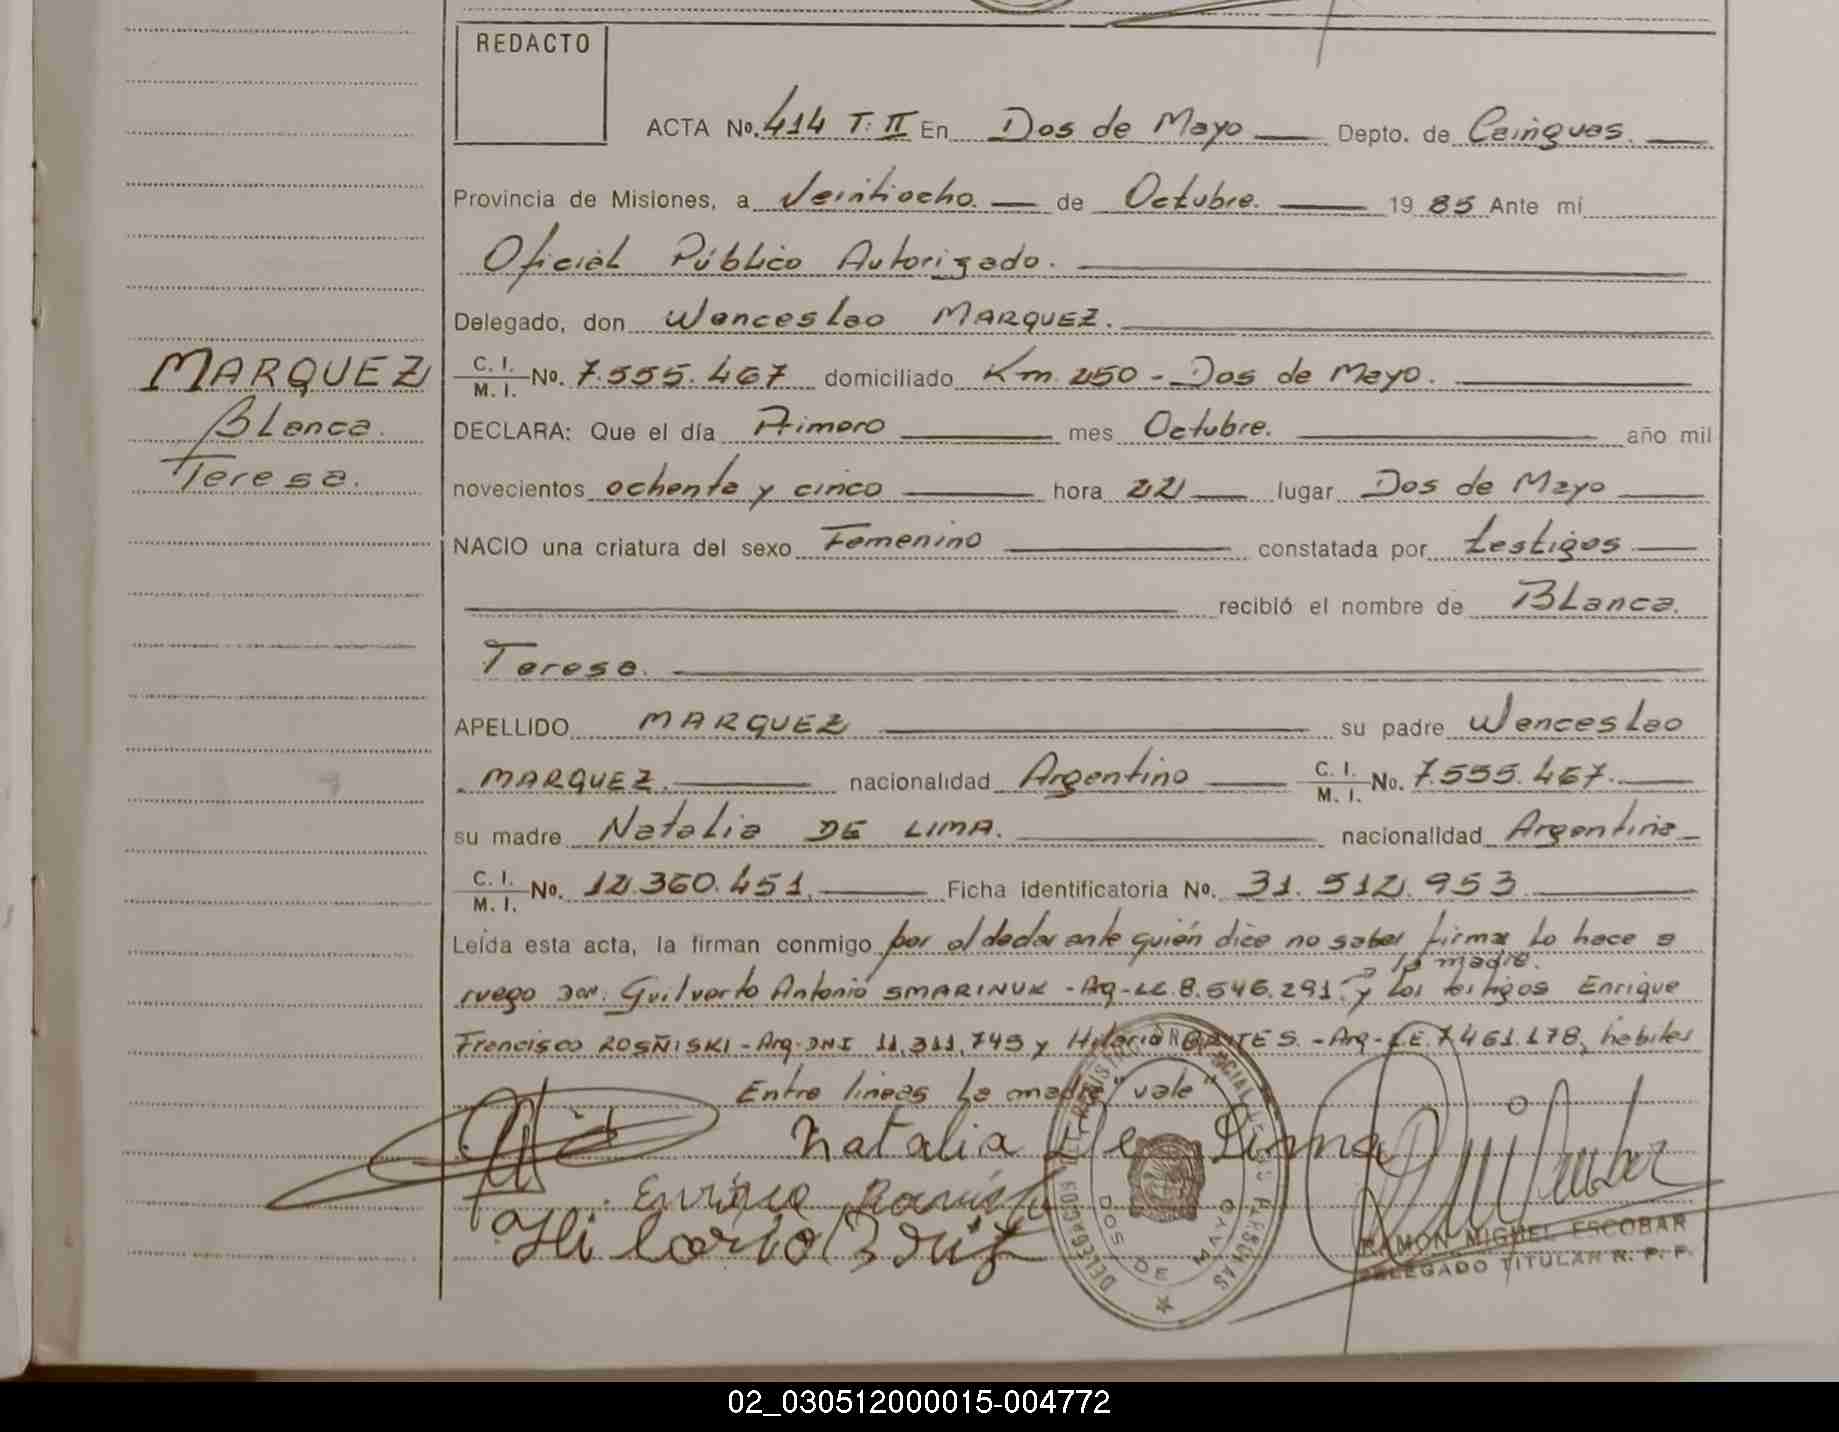 REDACTO
ACTA No. 414 T. II En Dos de Mayo Depto. de Cainguas.
Provincia de Misiones, a Veintiocho. de Octubre. 19 85 Ante mí
Oficial Público Autorizado.
Delegado, don Wenceslao MARQUEZ.
MARQUEZ
Blanca.
Teresa.
C. I. / M. I. No. 7.555.467 domiciliado Km. 250 - Dos de Mayo.
DECLARA: Que el día Primero mes Octubre. año mil
novecientos ochenta y cinco hora 22 lugar Dos de Mayo
NACIO una criatura del sexo Femenino constatada por testigos
recibió el nombre de Blanca.
Teresa.
APELLIDO MARQUEZ su padre Wenceslao
MARQUEZ. nacionalidad Argentino C. I. / M. I. No. 7.555.467.
su madre Natalia DE LIMA. nacionalidad Argentina
C. I. / M. I. No. 12.360.451. Ficha identificatoria No. 31.512.953.
Leída esta acta, la firman conmigo por el declarante quién dice no saber firmar lo hace a
la madre.
ruego Don. Guilverto Antonio SMARINUK - Arg - LE. 8.546.291. y los testigos Enrique
Francisco ROSÑISKI - Arg. DNI 11.311.745 y Hilario - Arg - LE. 7.461.178, habiles
Entre lineas la madre "vale"
Natalia De Lima
Enrique
Hilario
DOS DE MAYO
RAMON MIGUEL ESCOBAR
DELEGADO TITULAR R. P. P.
02_030512000015-004772